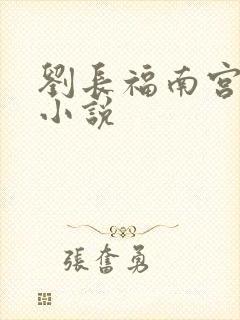 劉長福南宮
小說
張奮勇